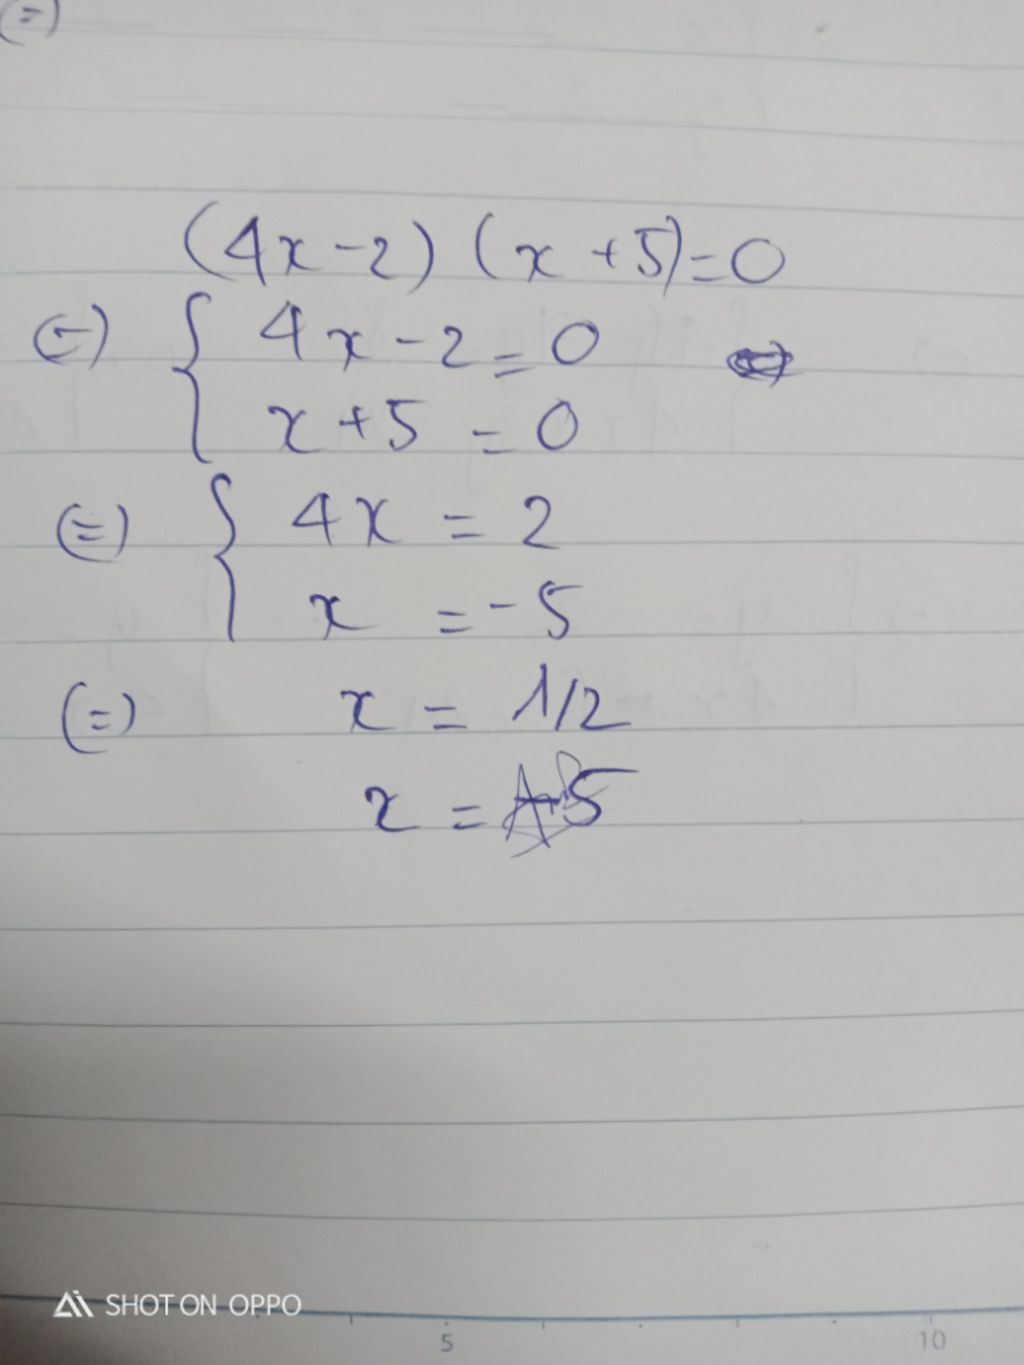 (=)
(4x-2) (x+5)=0
(=) { 4x-2=0
x+5=0
(=) { 4x = 2
x = -5
(=) x = 1/2
x = -5
SHOT ON OPPO
5 10